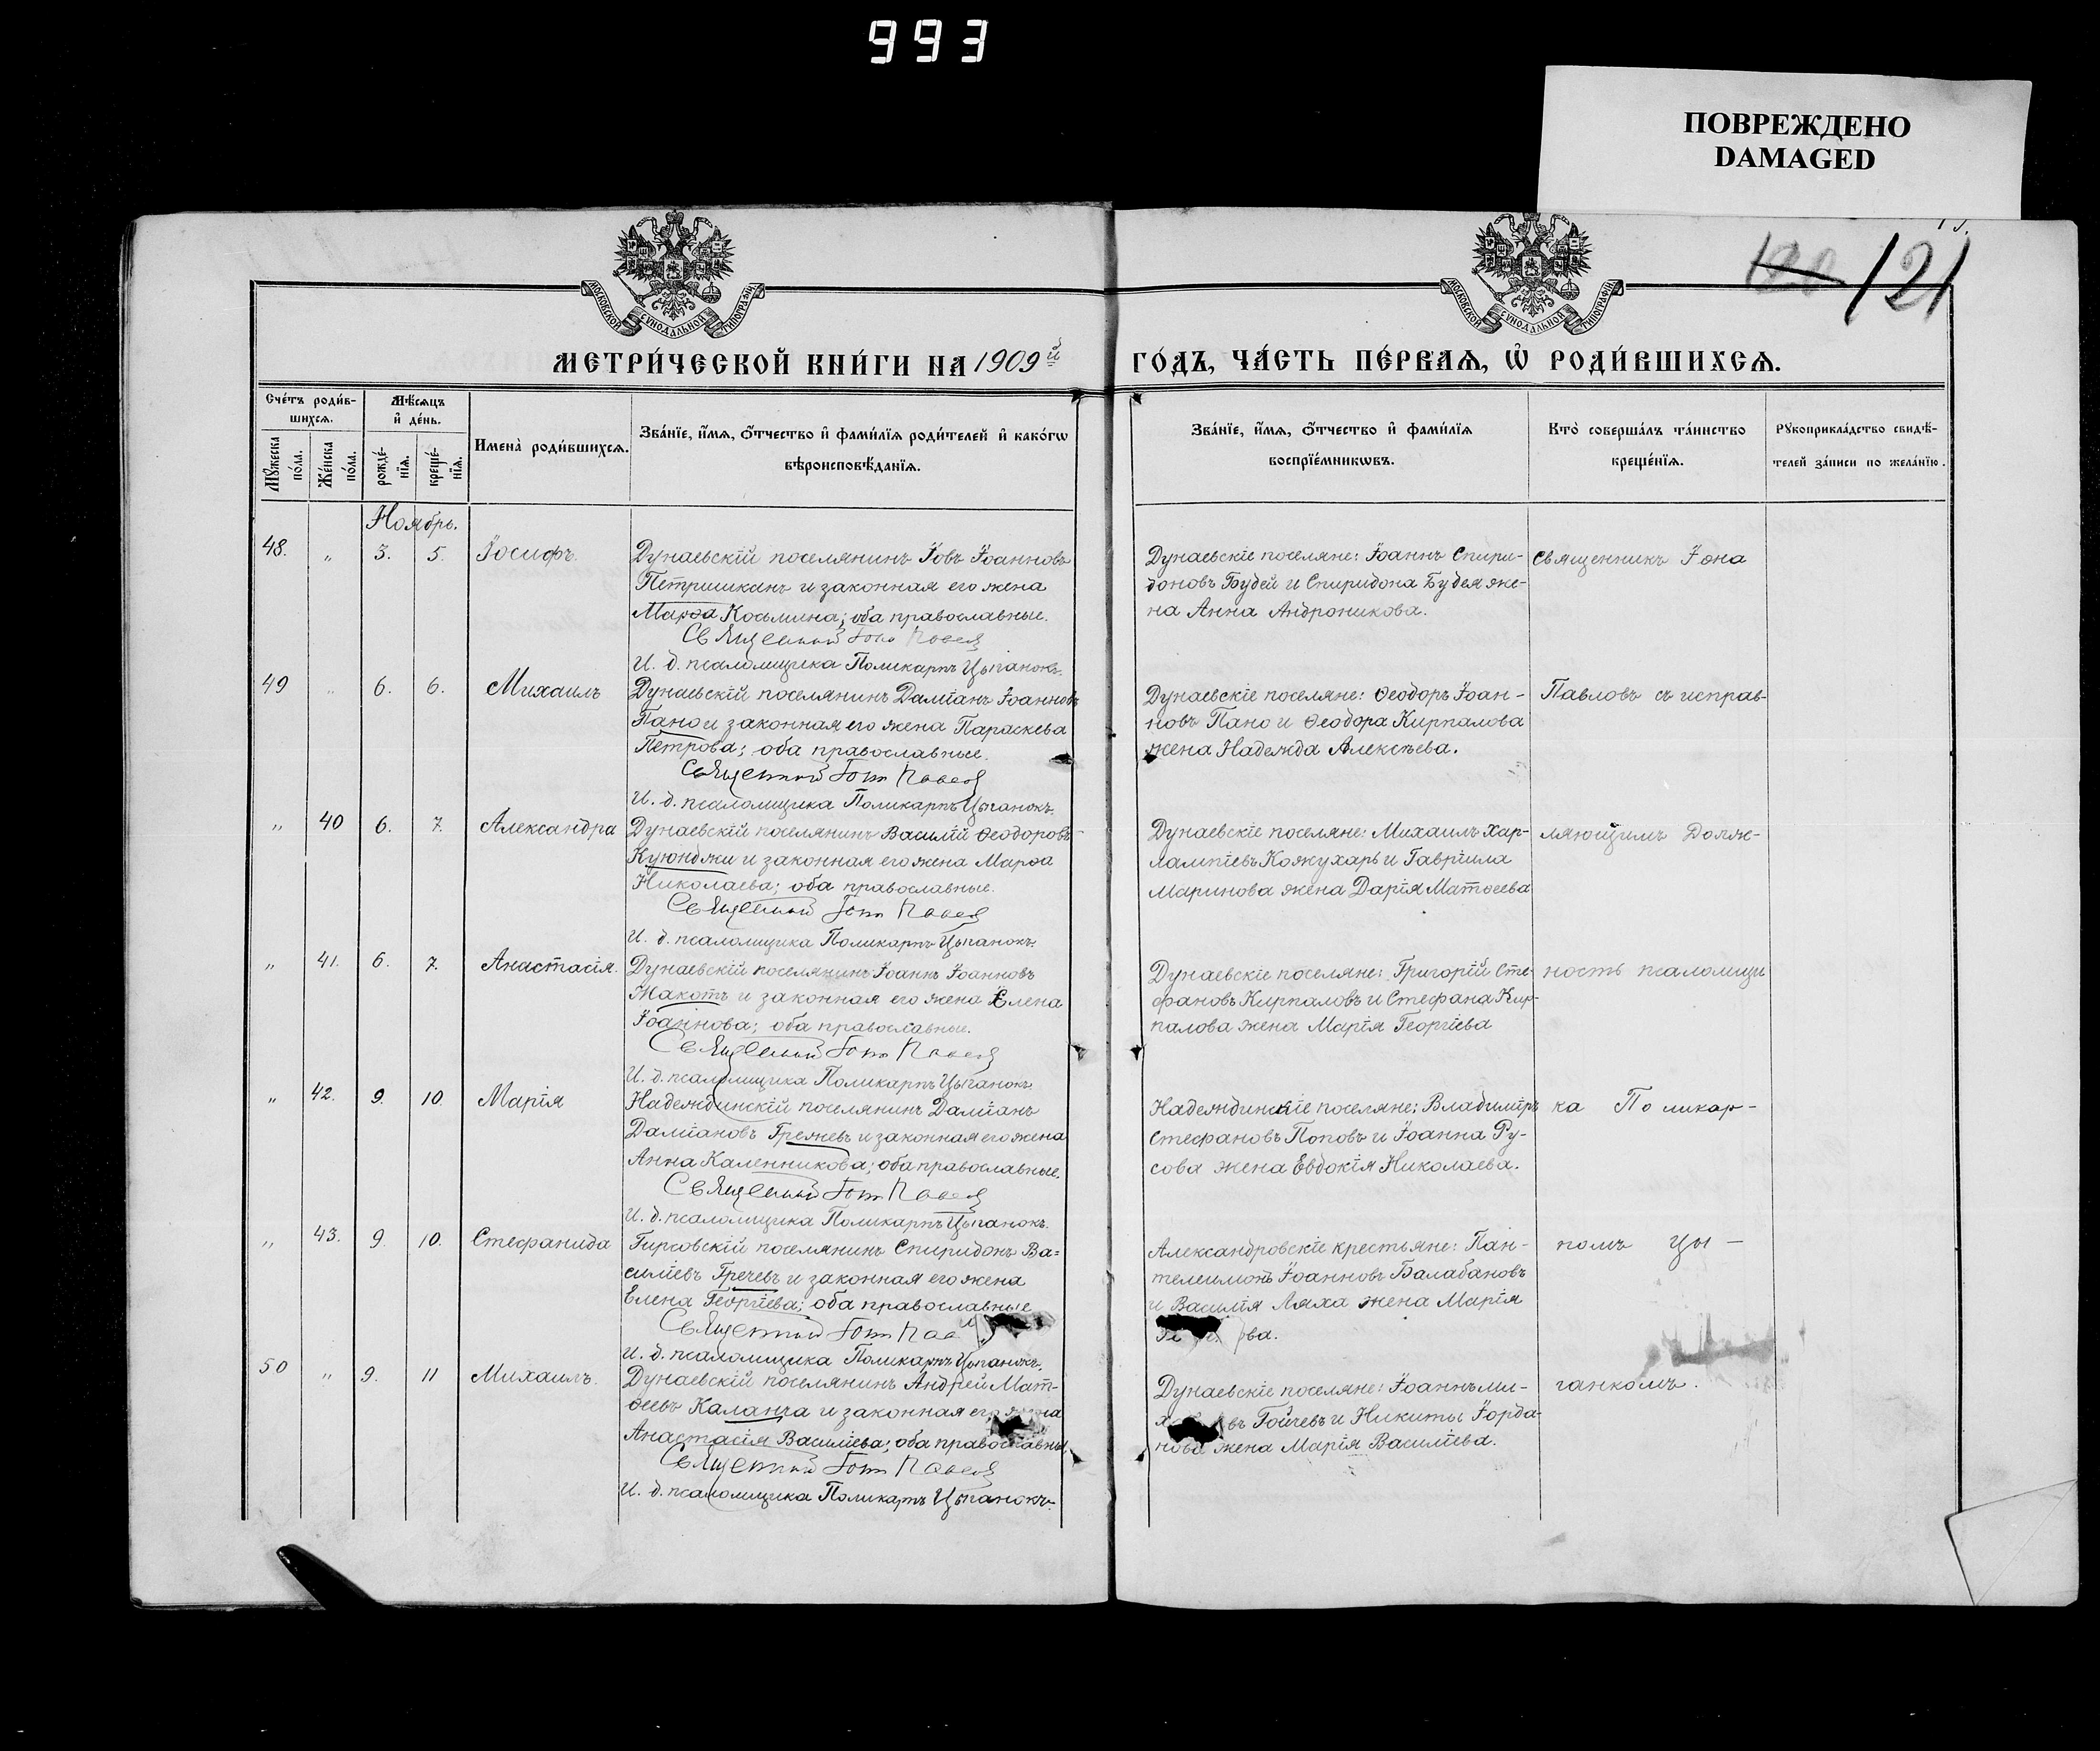 993
ПОВРЕЖДЕНО
DAMAGED
121
МОСКОВСКОЙ СУНОДАЛЬНОЙ ТИПОГРАФІИ
МОСКОВСКОЙ СУНОДАЛЬНОЙ ТИПОГРАФІИ
МЕТРИ́ЧЕСКОЙ КНИ́ГИ НА 1909й ГО́ДЪ, ЧА́СТЬ ПЕ́РВАѦ, Ѽ РОДИ́ВШИХСѦ.
Счётъ роди́в-
шихсѧ.
Мꙋ́жеска по́ла.
Же́нска по́ла.
Мѣ́сѧцъ
и҆ де́нь.
рожде́-
нїѧ.
креще́-
нїѧ.
Имена̀ роди́вшихсѧ.
Зва́нїе, и҆́мѧ, ѻ҆́тчество и҆ фами́лїѧ роди́телей и҆ како́гѡ
вѣроисповѣ́данїѧ.
Зва́нїе, и҆́мѧ, ѻ҆́тчество и҆ фами́лїѧ
воспрїе́мникѡвъ.
Кто̀ соверша́лъ та́инство
креще́нїѧ.
Рꙋкоприкла́дство свидѣ́-
телей за́писи по жела́нїю.
Ноябрь.
48. " 3. 5. Іосифъ.
Дунаевскій поселянинъ Іовъ Іоанновъ
Петришканъ и законная его жена
Марѳа Косьмина; оба православные.
Священникъ Іона Павловъ
И. д. псаломщика Поликарпъ Цыганокъ.
Дунаевскіе поселяне: Іоаннъ Спири-
доновъ Будей и Спиридона Будея же-
на Анна Андроникова.
Священникъ Іона
49 " 6. 6. Михаилъ
Дунаевскій поселянинъ Даміанъ Іоанновъ
Пано и законная его жена Параскева
Петрова; оба православные.
Священникъ Іона Павловъ
И. д. псаломщика Поликарпъ Цыганокъ.
Дунаевскіе поселяне: Ѳеодоръ Іоан-
новъ Пано и Ѳеодора Кирпалова
жена Надежда Алексѣева.
Павловъ съ исправ-
" 40 6. 7. Александра
Дунаевскій поселянинъ Василій Ѳеодоровъ
Куюнджи и законная его жена Марѳа
Николаева; оба православные.
Священникъ Іона Павловъ
И. д. псаломщика Поликарпъ Цыганокъ.
Дунаевскіе поселяне: Михаилъ Хар-
лампіевъ Кожухарь и Гавріила
Маринова жена Дарія Матѳеева
ляющимъ долж-
" 41. 6. 7. Анастасія.
Дунаевскій поселянинъ Іоаннъ Іоанновъ
Жакотъ и законная его жена Елена
Іоаннова; оба православные.
Священникъ Іона Павловъ
И. д. псаломщика Поликарпъ Цыганокъ.
Дунаевскіе поселяне: Григорій Сте-
фановъ Кирпаловъ и Стефана Кир-
палова жена Марія Георгіева
ность псаломщи
" 42. 9. 10. Марія
Надеждинскій поселянинъ Даміанъ
Даміановъ Грежевъ и законная его жена
Анна Каленникова; оба православные.
Священникъ Іона Павловъ
И. д. псаломщика Поликарпъ Цыганокъ.
Надеждинскіе поселяне: Владиміръ
Стефановъ Поповъ и Іоанна Ру-
сова жена Евдокія Николаева.
ка Поликар-
" 43. 9. 10. Стефанида
Гирсовскій поселянинъ Спиридонъ Ва-
силіевъ Гречевъ и законная его жена
Елена Георгіева; оба православные
Священникъ Іона
И. д. псаломщика Поликарпъ Цыганокъ.
Александровскіе крестьяне: Пан-
телеимонъ Іоанновъ Балабановъ
и Василія Ляха жена Марія
ва.
помъ Цы-
50 " 9. 11 Михаилъ.
Дунаевскій поселянинъ Андрей Мат-
ѳеевъ Каланча и законная его жена
Анастасія Василіева; оба православны
Священникъ Іона Павловъ
И. д. псаломщика Поликарпъ Цыганокъ.
Дунаевскіе поселяне: Іоаннъ Ми-
въ Гойчевъ и Никиты Іорда-
нова жена Марія Василіева.
ганкомъ.